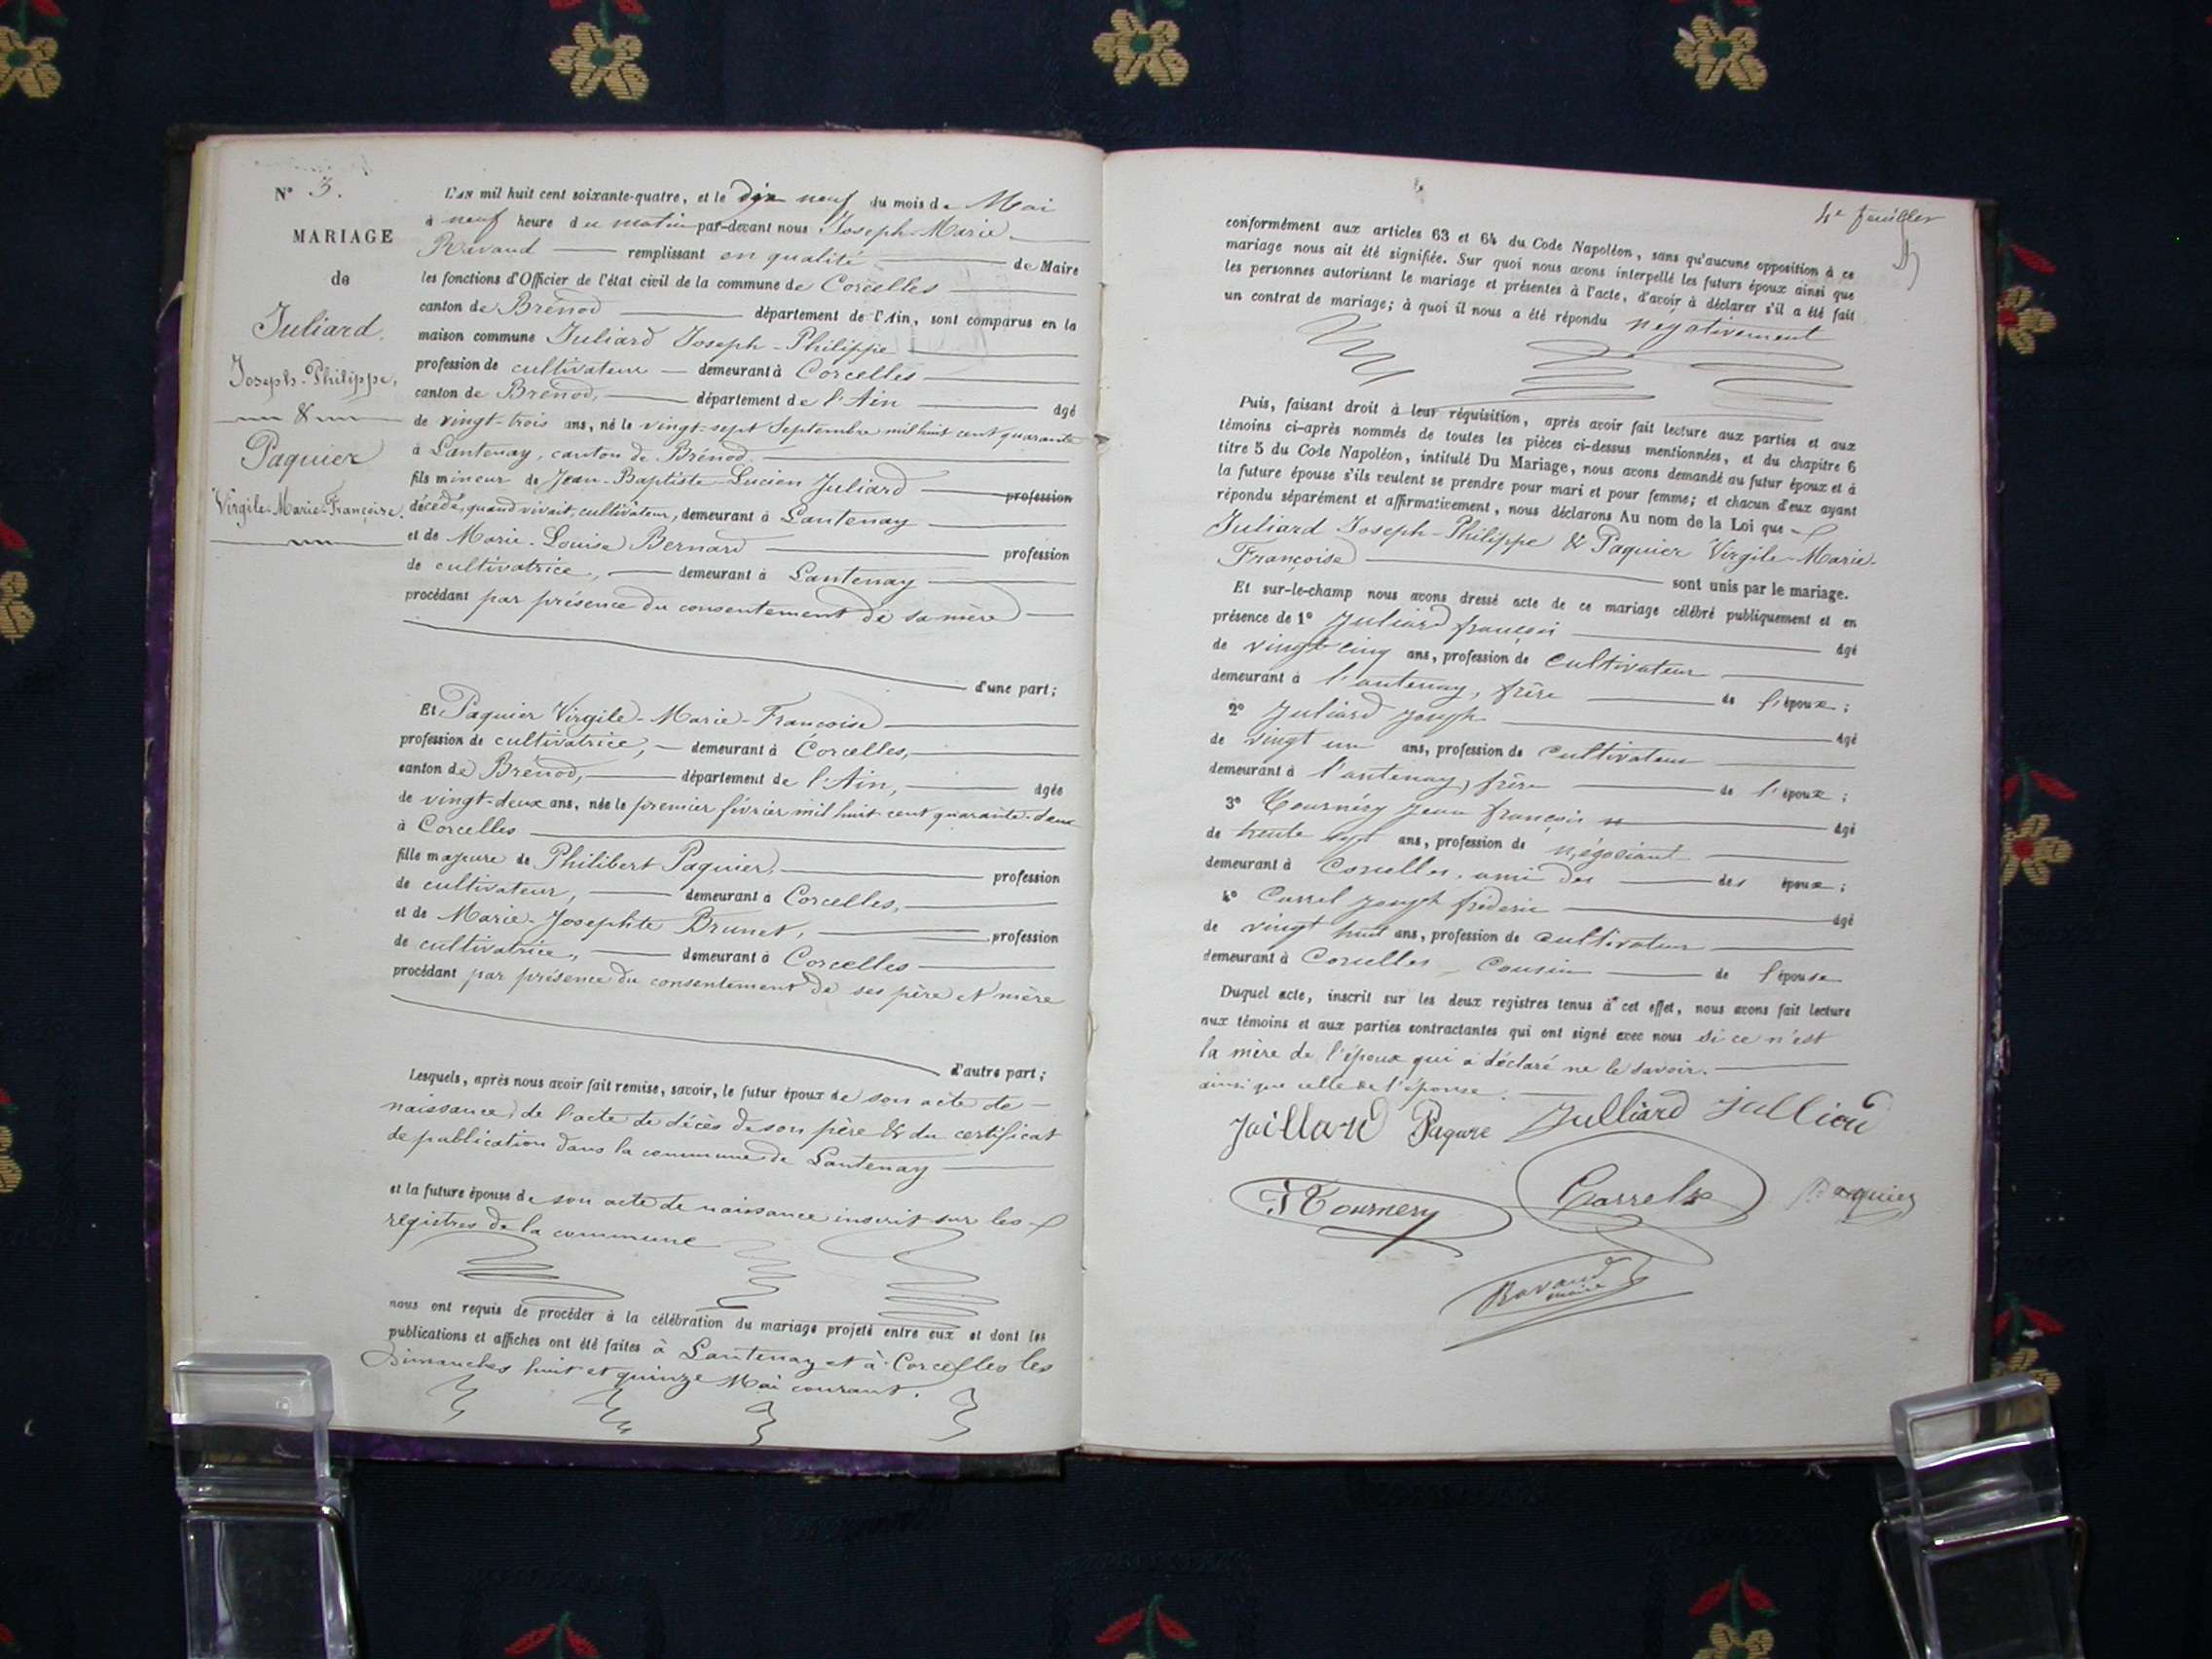 N° 3.
MARIAGE
de
Juliard
Joseph-Philippe,
&
Paquier
Virgile-Marie-Françoise.
L'AN mil huit cent soixante-quatre, et le dix neuf du mois de Mai
à neuf heure du matin par-devant nous Joseph-Marie
Ravaud remplissant en qualité de Maire
les fonctions d'Officier de l'état civil de la commune de Corcelles
canton de Brénod département de l'Ain, sont comparus en la
maison commune Juliard Joseph-Philippe
profession de cultivateur demeurant à Corcelles
canton de Brénod, département de l'Ain âgé
de vingt-trois ans, né le vingt-sept Septembre mil huit cent quarante
à Lantenay, canton de Brénod.
fils mineur de Jean-Baptiste-Lucien Juliard profession
décédé, quand vivait, cultivateur, demeurant à Lantenay
et de Marie-Louise Bernard profession
de cultivatrice, demeurant à Lantenay
procédant par présence du consentement de sa mère
d'une part;
Et Paquier Virgile-Marie-Françoise
profession de cultivatrice, demeurant à Corcelles,
canton de Brénod, département de l'Ain, âgée
de vingt-deux ans, née le premier février mil huit cent quarante-deux
à Corcelles
fille majeure de Philibert Paquier, profession
de cultivateur, demeurant à Corcelles,
et de Marie-Josephte Brunet, profession
de cultivatrice, demeurant à Corcelles
procédant par présence du consentement de ses père et mère
d'autre part;
Lesquels, après nous avoir fait remise, savoir, le futur époux de son acte de
naissance, de l'acte de décès de son père & du certificat
de publication dans la commune de Lantenay
et la future épouse de son acte de naissance inscrit sur les
registres de la commune
nous ont requis de procéder à la célébration du mariage projeté entre eux et dont les
publications et affiches ont été faites à Lantenay et à Corcelles les
Dimanches huit et quinze Mai courant.
4e feuillet
conformément aux articles 63 et 64 du Code Napoléon, sans qu'aucune opposition à ce
mariage nous ait été signifiée. Sur quoi nous avons interpellé les futurs époux ainsi que
les personnes autorisant le mariage et présentes à l'acte, d'avoir à déclarer s'il a été fait
un contrat de mariage; à quoi il nous a été répondu négativement
Puis, faisant droit à leur réquisition, après avoir fait lecture aux parties et aux
témoins ci-après nommés de toutes les pièces ci-dessus mentionnées, et du chapitre 6
titre 5 du Code Napoléon, intitulé Du Mariage, nous avons demandé au futur époux et à
la future épouse s'ils veulent se prendre pour mari et pour femme; et chacun d'eux ayant
répondu séparément et affirmativement, nous déclarons Au nom de la Loi que
Juliard Joseph-Philippe & Paquier Virgile-Marie-
Françoise sont unis par le mariage.
Et sur-le-champ nous avons dressé acte de ce mariage célébré publiquement et en
présence de 1° Juliard françois âgé
de vingt cinq ans, profession de cultivateur
demeurant à l'antenay, frère de l'époux;
2° Juliard joseph âgé
de vingt un ans, profession de cultivateur
demeurant à l'antenay, frère de l'époux;
3° Tournéry jean françois âgé
de trente sept ans, profession de négociant
demeurant à Corcelles, ami des des époux;
4° Carrel joseph fréderic âgé
de vingt huit ans, profession de cultivateur
demeurant à Corcelles Cousin de l'épouse
Duquel acte, inscrit sur les deux registres tenus à cet effet, nous avons fait lecture
aux témoins et aux parties contractantes qui ont signé avec nous si ce n'est
la mère de l'époux qui a déclaré ne le savoir.
ainsi que celle de l'épouse.
Juillard Paquie Julliard Julliard
JTournery Carrel Paquier
Ravaud
maire